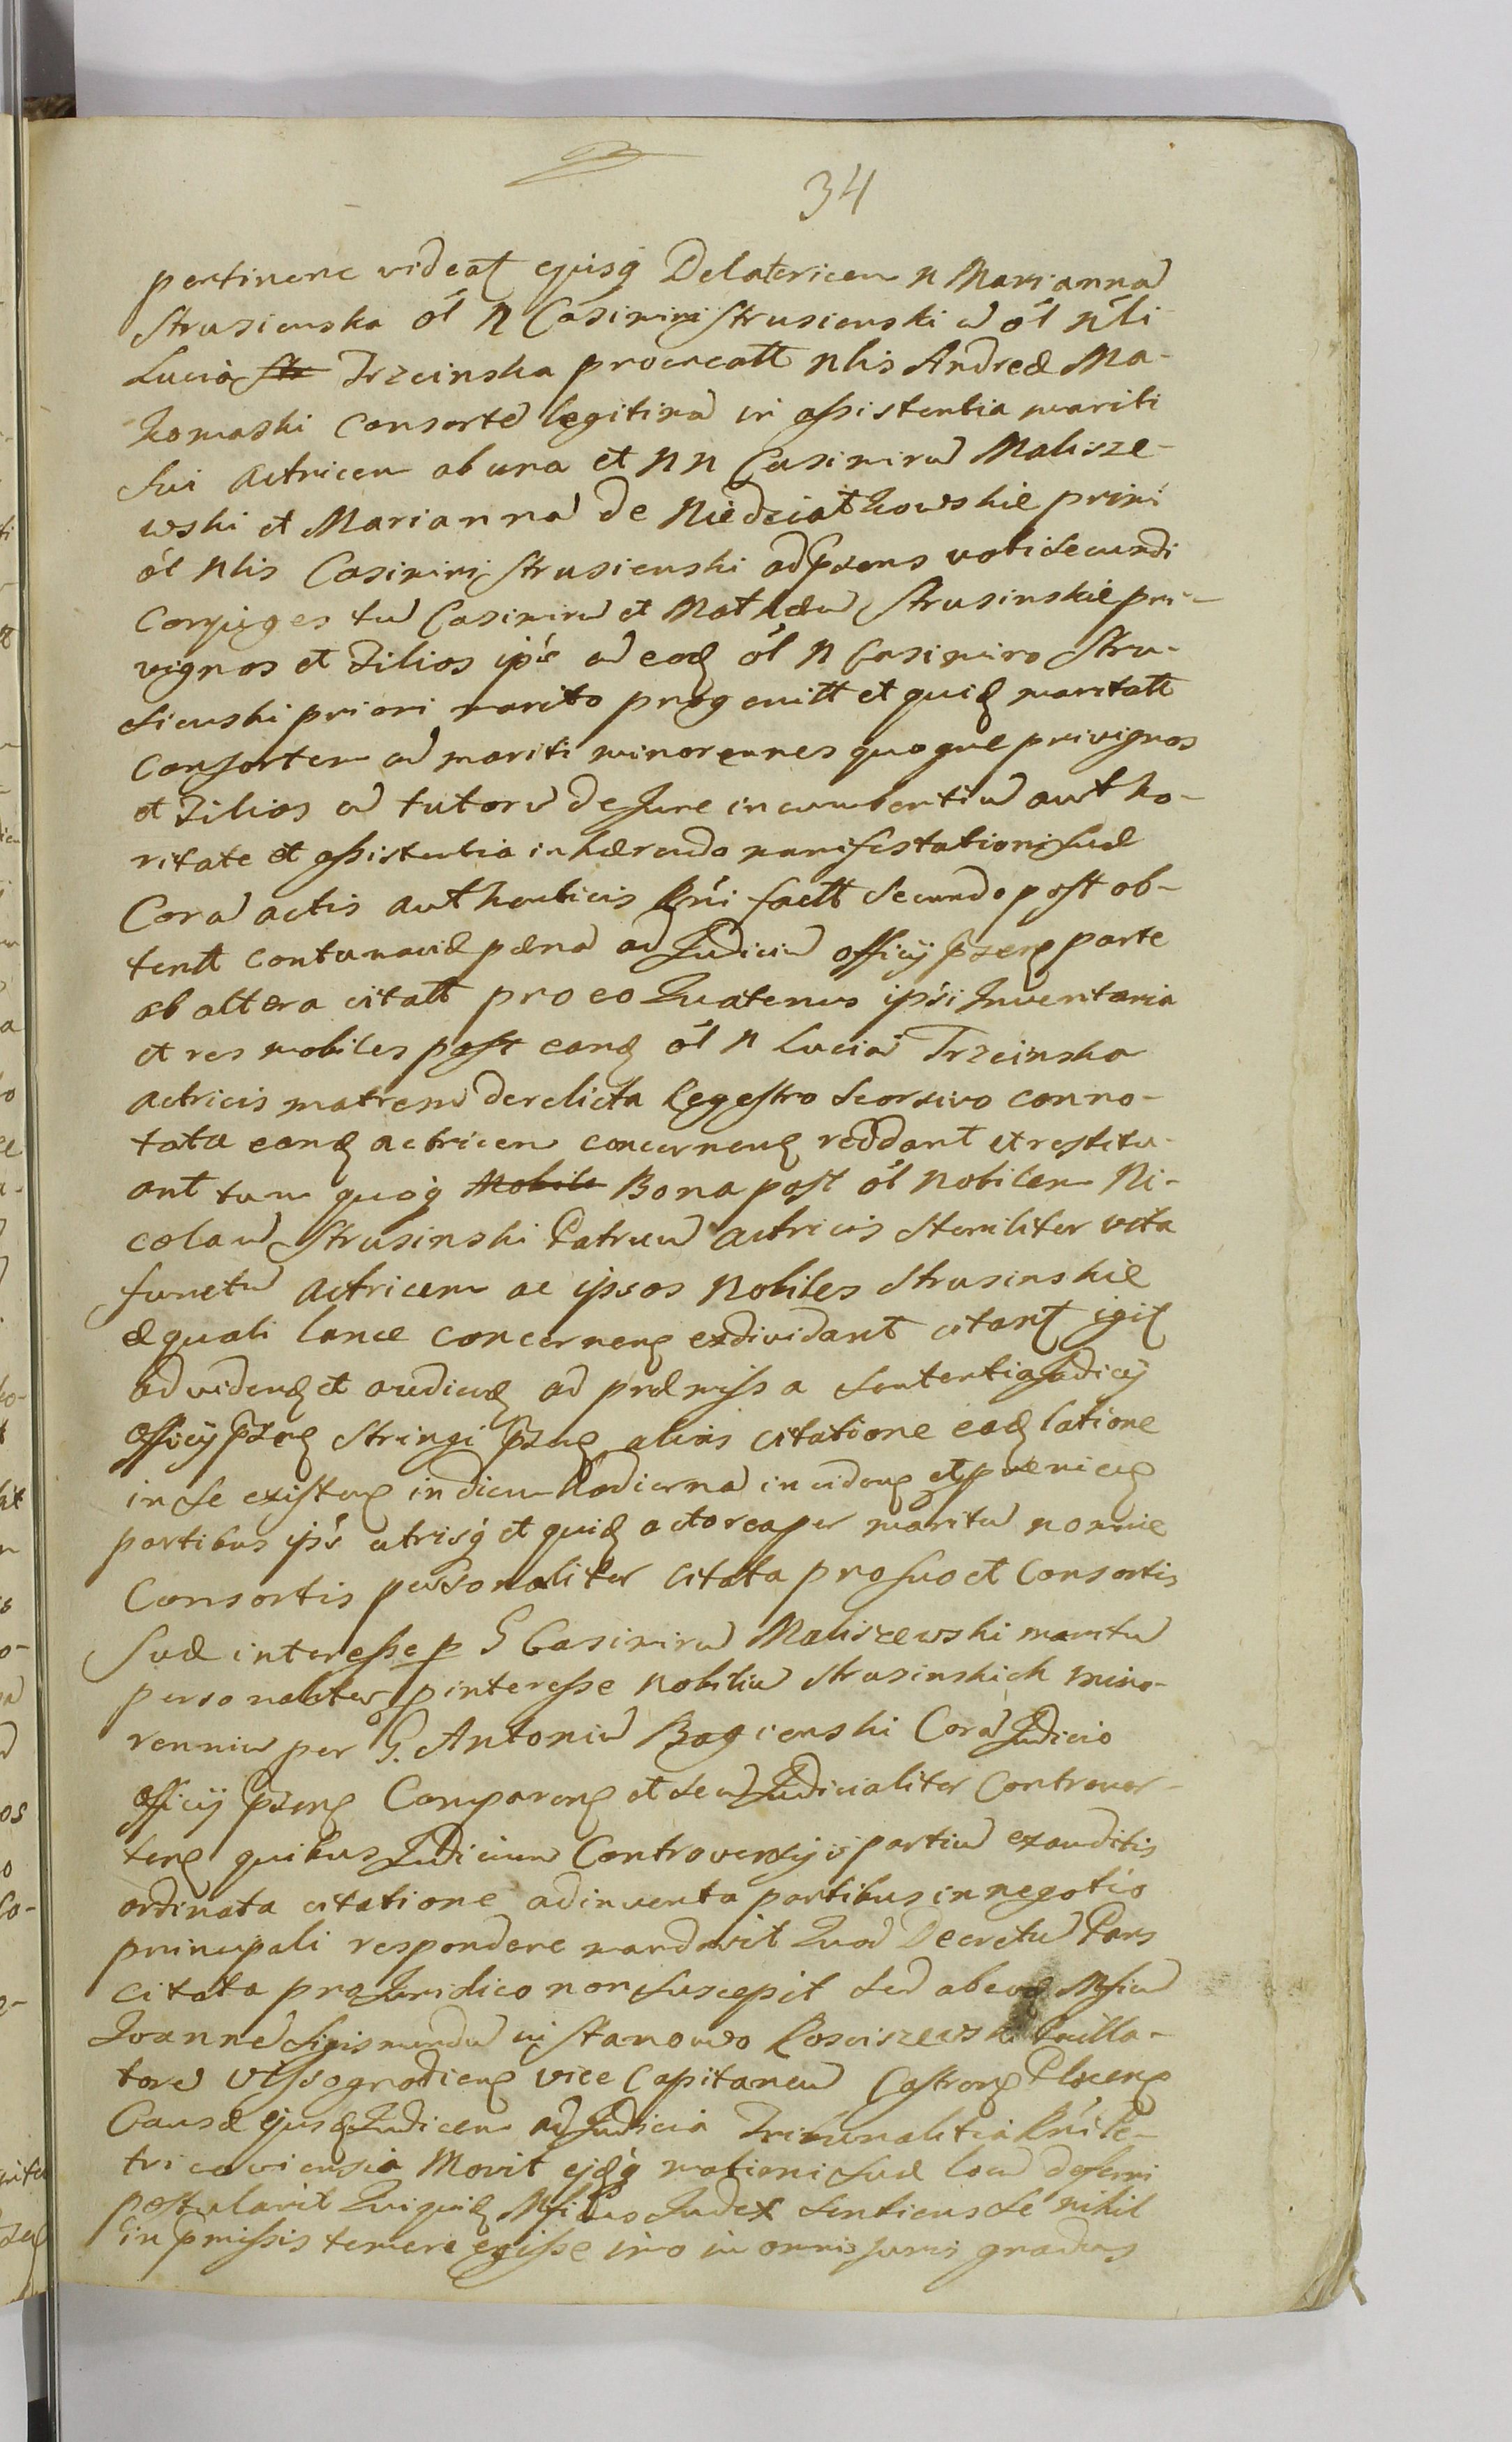 34
pertinere videat ejusq Delatricem N Marianna
Strusienska ol N Casimiri Strusienski ad ol nli
Lucia Str Trzcinska procreatt Nlis Andreæ Ma-
komaski Consorte legitima in assistentia mariti
sui Actricem ab una et NN Casimiru Malisze-
wski et Marianna de Niedziałkowskie primi
ol Nlis Casimiri Strusienski ad pzens voti secundi
Conjuges tu Casimiru et Mathæu Strusinskie pri-
vignos et Filios ips ad eod ol N Casimiro Stru-
sienski priori marito progenitt et quid maritatt
Consortem ad mariti minorennes quoque privignos
et Filios ad tutoru de Jure incumbentiu autho-
ritate et assistentia inhærendo manifestationi suæ
Cora actis authenticis Rni factt Secundo post ob-
tentt contumaciæ pæna ad Judiciu officy pzens parte
ab altera citatt pro eo Quatenus ipsi Inventaria
et res mobiles post eand ol N Lucia Trzcinska
actricis matrem derelicta Regestro seorsivo conno-
tata eand actricem concernens reddant et restitu-
ant tum quoq Mobile Bona post ol Nobilem Ni-
colau Strusinski Patruu actricis steriliter vita
functu Actricem ac ipsos Nobiles Strusinskie
æquali lance concernens exdividant citant igit
ad vidend et audiend ad præmissa sententia Judicy
officy pzens Stringi pzens alias citatione ead latione
in se existens in diem hodierna incidens et pveniens
partibus ips utrisq et quid actorea per maritu nomine
Consortis personaliter citata pro suo et Consortis
suæ interesse p G Casimiru Maliszewski maritu
personaliter p interesse Nobiliu Strusinskich mino-
renniu per G. Antoniu Bagienski Cora Judicio
officy pzens Comparens et secu Judicialiter Controver-
tens quibus Judicium Controversyis partiu exauditis
ordinata citatione adinventa partibus in negotio
principali respondere mandavit Quod Decretu Pars
citata pro Juridico non suscepit sed ab eod Mfico
Joanne Sigismundu in Stanowo Kosciszewski
tore Vissogrodiens Vice Capitaneu Castrens Plocens
Causæ ejusd Judicem ad Judicia Tribunalitia Rni Pe-
tricoviensia Movit ejdq motioni suæ locu deferri
postulavit Qui quid Mficus Judex sentiens se nihil
in pmissis temere egisse imo in omni juris gradus